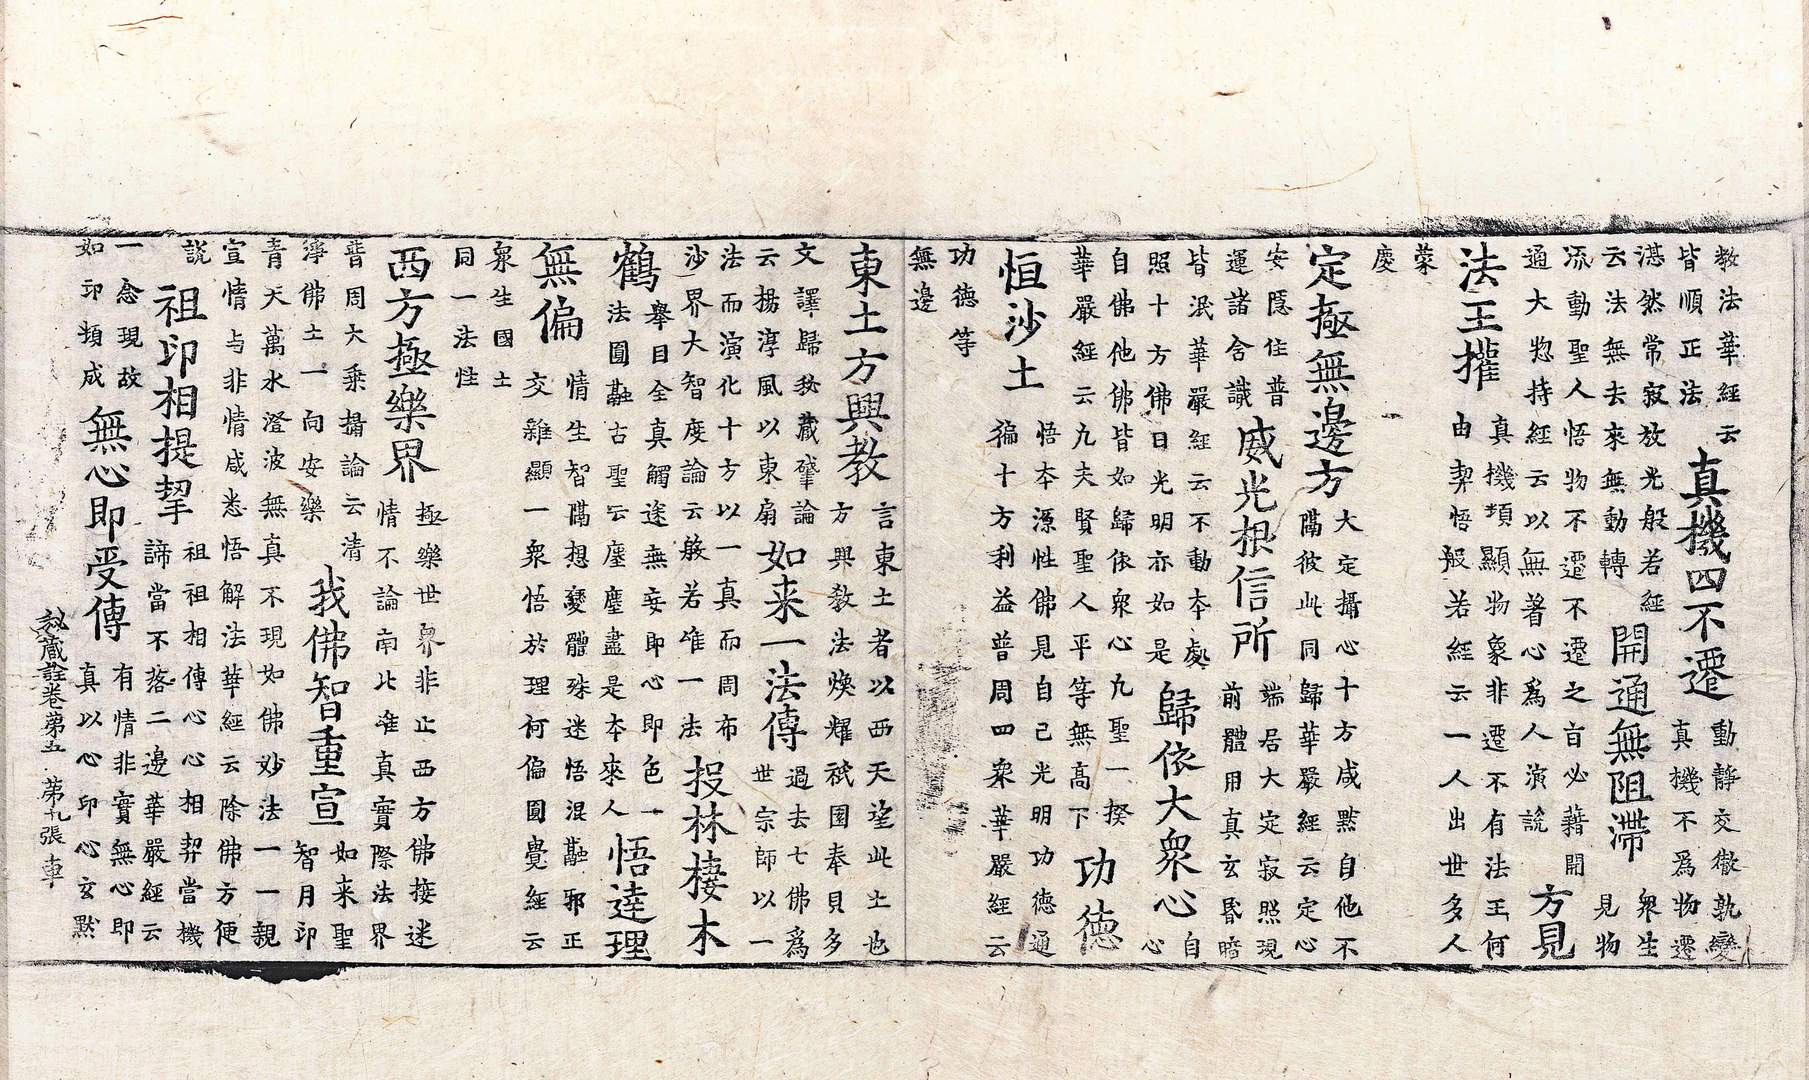 教法華經云
皆順正法
真機四不遷
動靜交徹孰變
真機不為物遷
湛然常寂放光般若經
云法無去來無動轉
開通無阻滯
衆生
見物
流動聖人悟物不遷不遷之旨必藉開
通大惣持經云以無著心為人演說
方見
法王權
真機頓顯物象非遷不有法王何
由契悟般若經云一人出世多人
蒙
慶
定極無邊方
大定攝心十方咸默自他不
隔彼此同歸華嚴經云定心
安隱住普
運諸含識
威光根信所
端居大定寂照現
前體用真玄昏暗
皆泯華嚴經云不動本處
照十方佛日光明亦如是
歸依大衆心
自
心
自佛他佛皆如歸依衆心九聖一揆
華嚴經云九夫賢聖人平等無高下
功德
恒沙土
悟本源性佛見自己光明功德通
徧十方利益普周四衆華嚴經云
功德等
無邊
東土方興教
言東土者以西天望此土也
方興教法煥耀祇園奉貝多
文譯歸秘藏肇論
云揚淳風以東扇
如来一法傳
過去七佛為
世宗師以一
法而演化十方以一真而周布
沙界大智度論云般若唯一法
投林棲木
鶴
舉目全真觸途無妄即心即色一
法圓融古聖云塵塵盡是本來人
悟達理
無偏
情生智隔想變體殊迷悟混融邪正
交雜顯一衆悟於理何偏圓覺經云
衆生國土
同一法性
西方極樂界
極樂世界非止西方佛接迷
情不論南北唯真實際法界
普周大乘攝論云清
淨佛土一向安樂
我佛智重宣
如来聖
智月印
青天萬水澄波無真不現如佛妙法一一親
宣情与非情咸悉悟解法華經云除佛方便
說
祖印相提挈
祖祖相傳心心相契當機
諦當不落二邊華嚴經云
一念現故
如印頓成
無心即受傳
有情非實無心即
真以心印心玄黙
秘藏詮卷第五 第九張 車